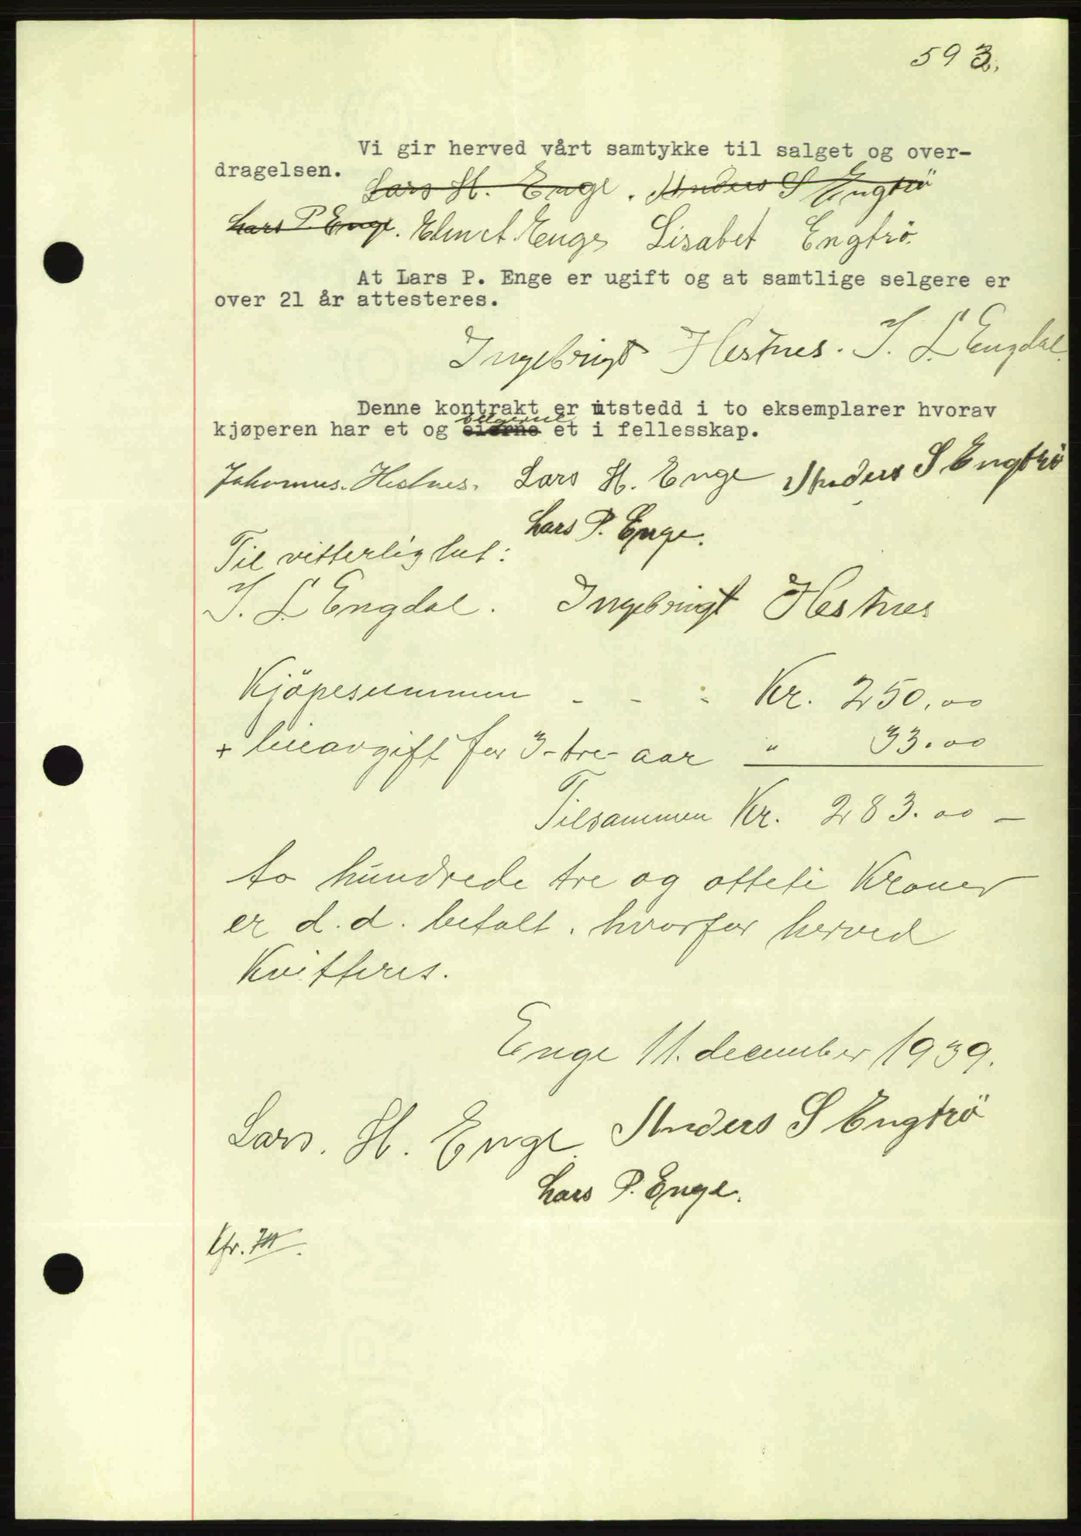 593.
Vi gir herved vårt samtykke til salget og over-
dragelsen.
Lars H. Enge. Anders S Engtrö
Lars P. Enge. Lisabet Engtrö.
At Lars P. Enge er ugift og at samtlige selgere er
over 21 år attesteres.
Ingebrigt Hestnes. I. L Engdal.
Denne kontrakt er utstedd i to eksemplarer hvorav
selgerne
kjøperen har et og eierne et i fellesskap.
Johannes. Hestnes. Lars H. Enge Anders S Engtrö
Lars P. Enge.
Til vitterlighet:
I. L Engdal. Ingebrigt Hestnes
Kjöpesummen - - - Kr. 250.00
+ leieavgift for 3-tre- aar " 33.00
Tilsammen Kr. 283.00 —
to hundrede tre og otteti Kroner
er d.d. betalt, hvorfor herved
Kvitteres.
Enge 11. december 1939.
Lars. H. Enge. Anders S Engtrö
Lars P. Enge.
Kfr.